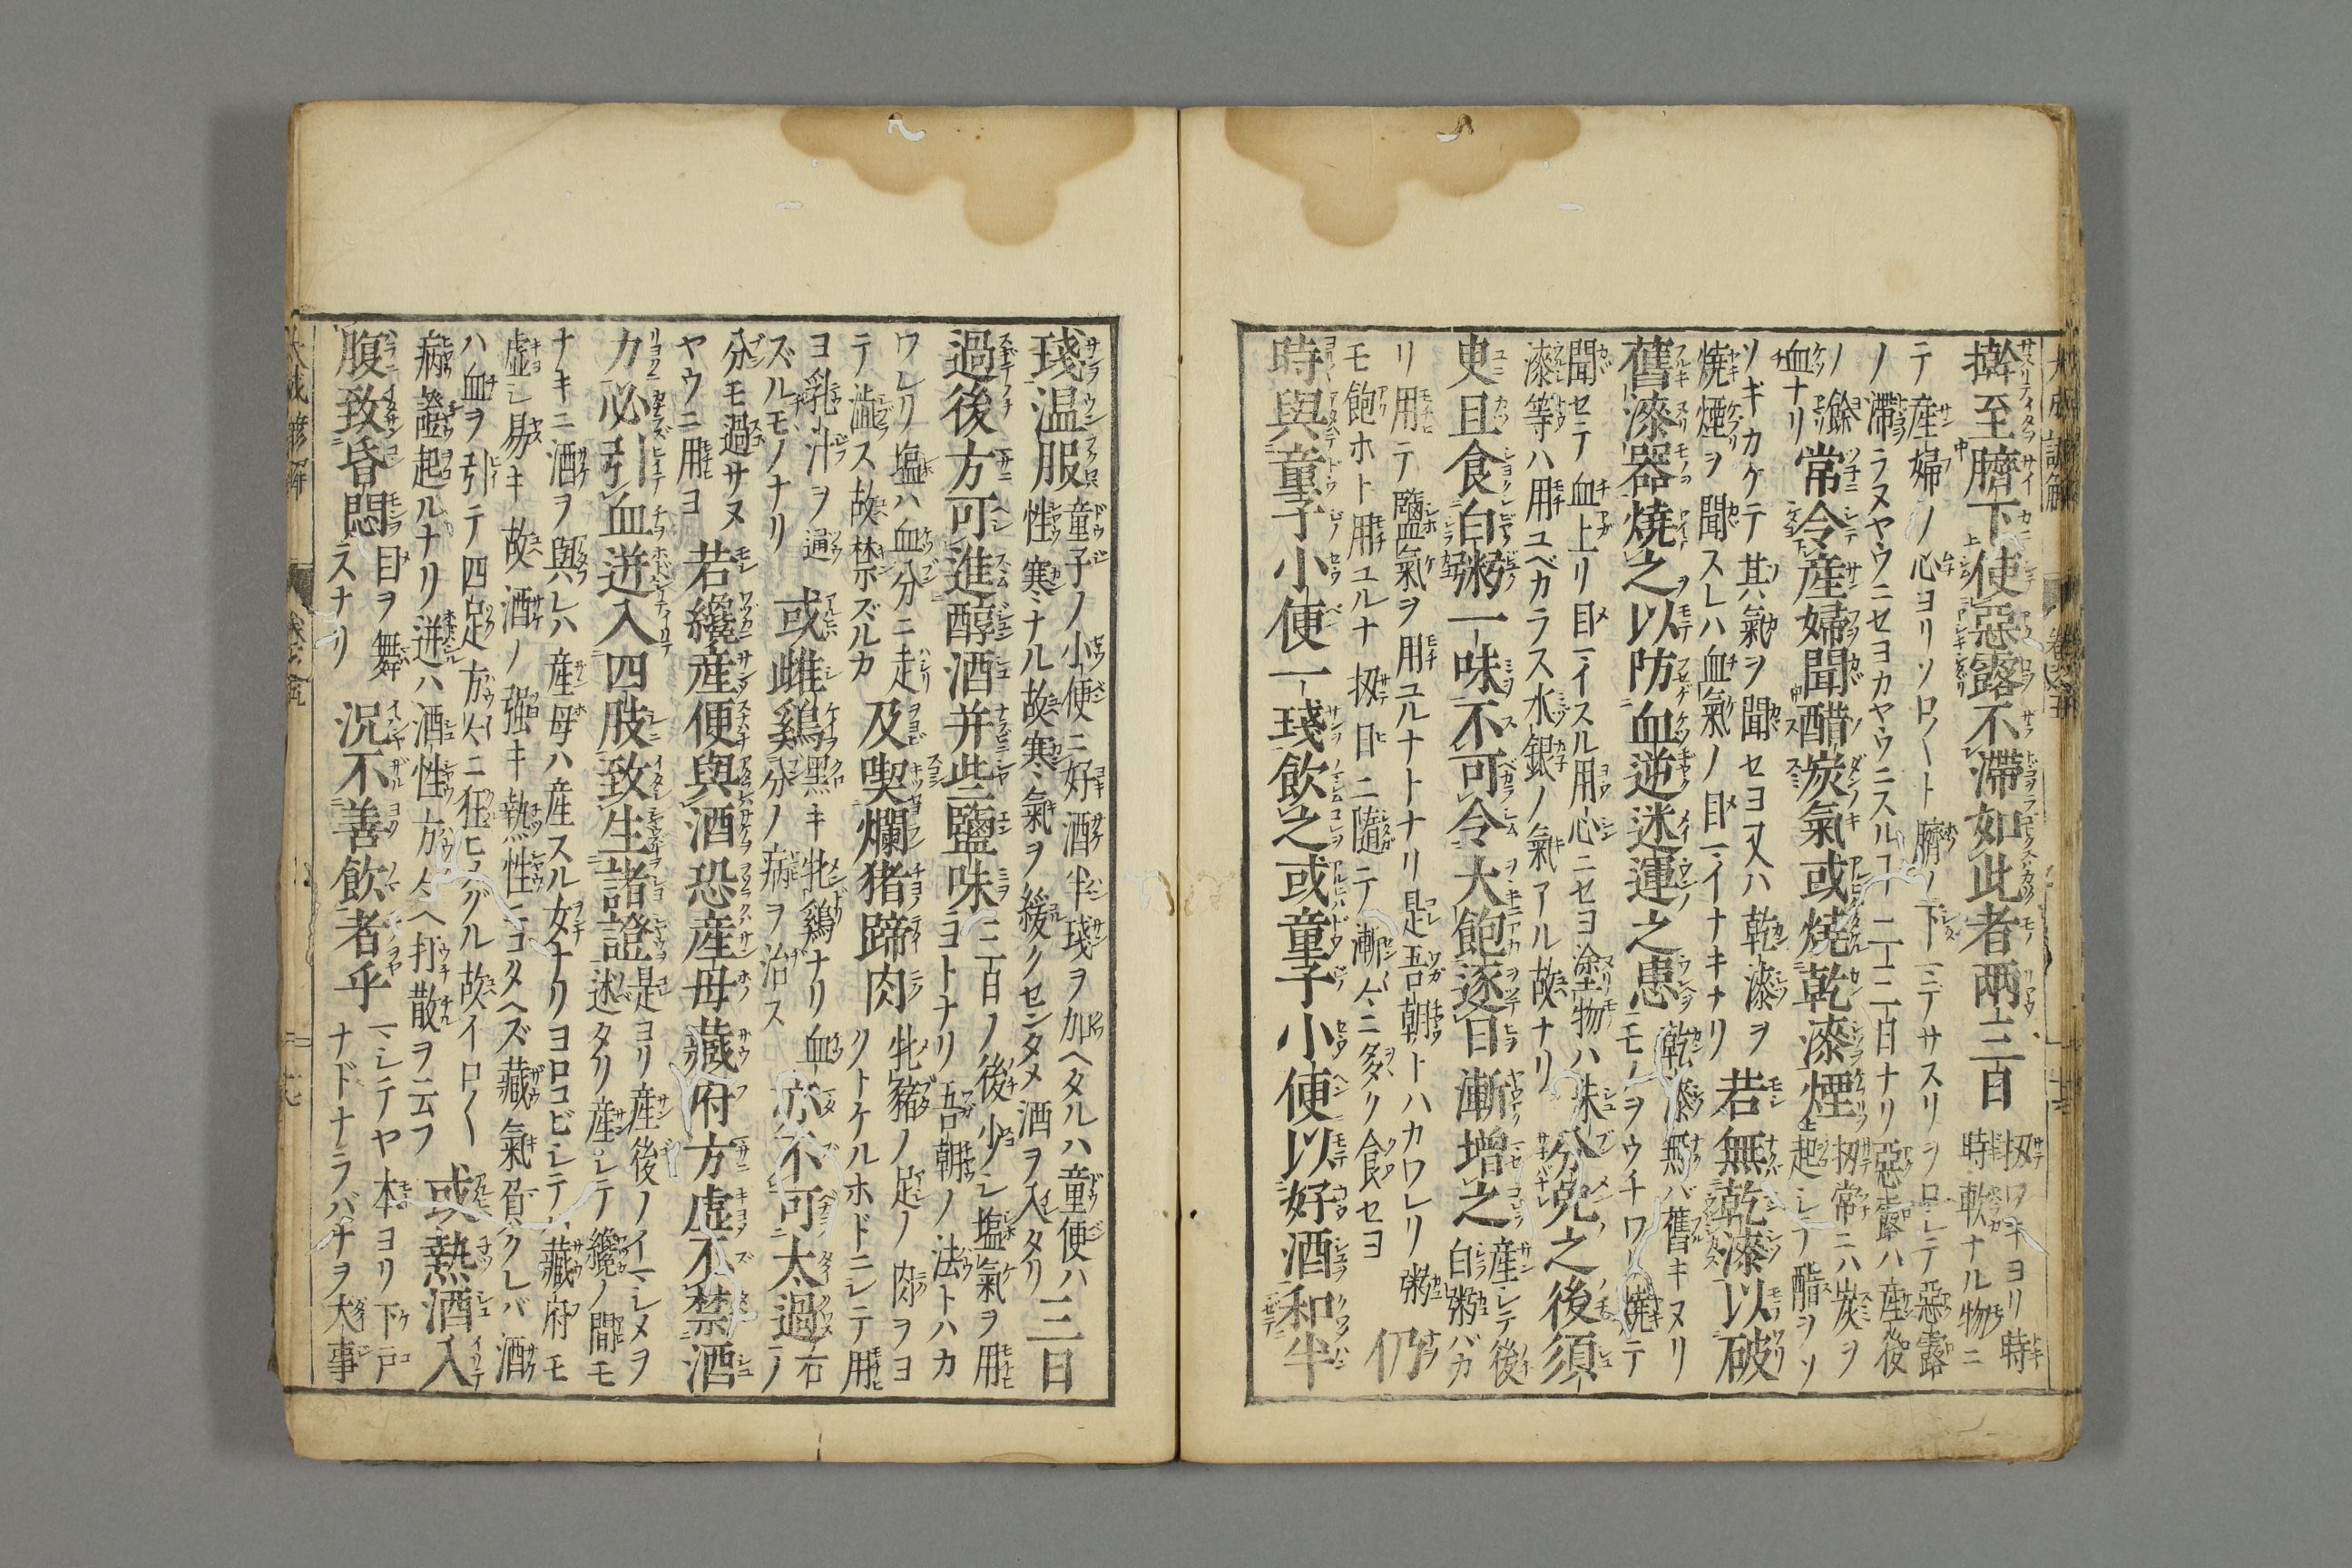 擀至臍下使惡露不滯如此者兩三日
扨ワキヨリ時
時軟カナル物ニ
テ産婦ノ心ヨリソロ〱ト臍ノ下ニテサスリヲロシテ惡露
ノ滯ラヌヤウニセヨカヤウニスルコト二三日ナリ惡露ハ産後
ノ餘
血ナリ
常令産婦聞醋炭氣或燒乾漆煙
扨常ニハ炭ヲ
起シテ醋ヲソ
ソギカケテ其氣ヲ聞セヨ又ハ乾漆ヲ
燒煙ヲ聞スレハ血氣ノ目マイナキナリ
若無乾漆以破
舊漆器燒之以防血逆迷運之患
乾漆無バ舊キヌリ
モノヲウチワリ燒テ
聞セテ血上リ目マイスル用心ニセヨ塗物ハ朱
漆等ハ用ユベカラス水銀ノ氣アル故ナリ
分娩之後須
臾且食白粥一味不可令大飽逐日漸增之
産シテ後
白粥バカ
リ用テ鹽氣ヲ用ユルナトナリ是吾朝トハカワレリ粥
モ飽ホト用ユルナ扨日ニ隨テ漸々ニ多ク食セヨ
仍
時與童子小便一琖飲之或童子小便以好酒和半
琖温服
童子ノ小便ニ好酒半琖ヲ加ヘタルハ童便ハ
性寒ナル故寒氣ヲ緩クセンタメ酒ヲ入タリ
三日
過後方可進醇酒并些鹽味
三日ノ後少シ塩氣ヲ用
ヨトナリ吾朝ノ法トハカ
ワレリ塩ハ血分ニ走
テ澁ス故禁ズルカ
及喫爛猪蹄肉
牝豬ノ足ノ肉ヲヨ
クトケルホドニシテ用
ヨ乳汁ヲ通
ズルモノナリ
或雌鷄
黑キ牝鷄ナリ血
分ノ病ヲ治ス
亦不可太過
右ノ
分モ過サヌ
ヤウニ用ヨ
若纔産便與酒恐産母藏府方虛不禁酒
力必引血迸入四肢致生諸證
是ヨリ産後ノイマシメヲ
述タリ産シテ纔ノ間モ
ナキニ酒ヲ與レハ産母ハ産スル女ナリヨロコビシテハ藏府モ
虚シ易キ故酒ノ強キ熱性ニコタヘズ藏氣負クレバ酒
ハ血ヲ引テ四足方々ニ狂ヒメグル故イロ〱
病證起ルナリ迸ハ酒性方々ヘ打散ヲ云フ
或熱酒入
腹致昏悶
目ヲ舞
スナリ
況不善飲者乎
マシテヤ本ヨリ下戸
ナドナラバナヲ大事